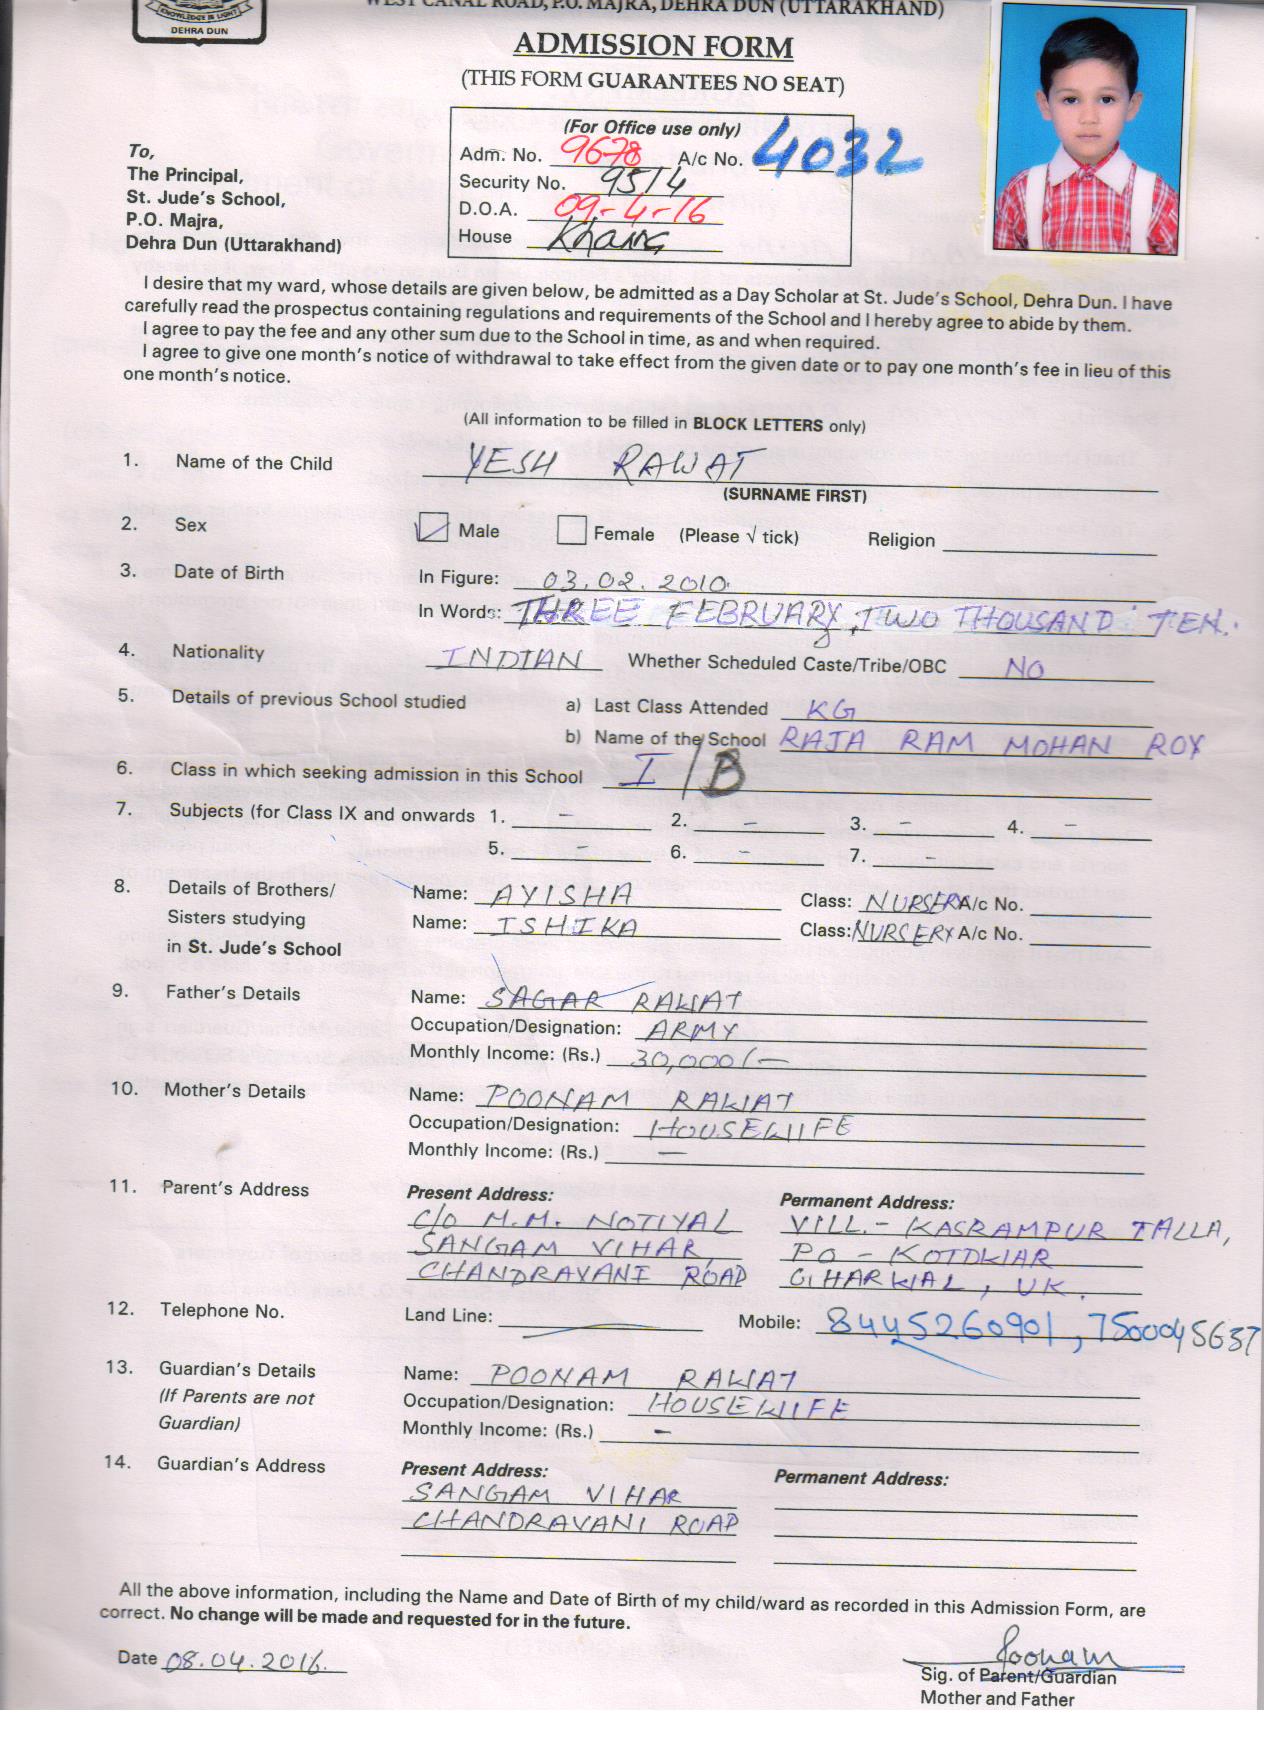 KNOWLEDGE IS LIGHT
DEHRA DUN
WEST CANAL ROAD, P.O. MAJRA, DEHRA DUN (UTTARAKHAND)
ADMISSION FORM
(THIS FORM GUARANTEES NO SEAT)
(For Office use only)
Adm. No. 9678 A/c No. 4032
Security No. 9514
D.O.A. 09-4-16
House
To,
The Principal,
St. Jude's School,
P.O. Majra,
Dehra Dun (Uttarakhand)
I desire that my ward, whose details are given below, be admitted as a Day Scholar at St. Jude's School, Dehra Dun. I have
carefully read the prospectus containing regulations and requirements of the School and I hereby agree to abide by them.
I agree to pay the fee and any other sum due to the School in time, as and when required.
I agree to give one month's notice of withdrawal to take effect from the given date or to pay one month's fee in lieu of this
one month's notice.
(All information to be filled in BLOCK LETTERS only)
1. Name of the Child YESH RAWAT
(SURNAME FIRST)
2. Sex Male Female (Please √ tick) Religion
3. Date of Birth In Figure: 03.02.2010.
In Words: THREE FEBRUARY, TWO THOUSAND TEN.
4. Nationality INDIAN Whether Scheduled Caste/Tribe/OBC NO
5. Details of previous School studied a) Last Class Attended KG
b) Name of the School RAJA RAM MOHAN ROY
6. Class in which seeking admission in this School I/B
7. Subjects (for Class IX and onwards 1. - 2. - 3. - 4. -
5. - 6. - 7. -
8. Details of Brothers/ Name: AYISHA Class: NURSERY A/c No.
Sisters studying Name: ISHIKA Class: NURSERY A/c No.
in St. Jude's School
9. Father's Details Name: SAGAR RAWAT
Occupation/Designation: ARMY
Monthly Income: (Rs.) 30,000/-
10. Mother's Details Name: POONAM RAWAT
Occupation/Designation: HOUSEWIFE
Monthly Income: (Rs.) -
11. Parent's Address Present Address: Permanent Address:
C/O M.M. NOTIYAL VILL.- KASRAMPUR TALLA,
SANGAM VIHAR, PO - KOTDWAR
CHANDRAVANI ROAD GHARWAL, UK.
12. Telephone No. Land Line: Mobile: 8445260901, 7500045637
13. Guardian's Details Name: POONAM RAWAT
(If Parents are not Occupation/Designation: HOUSEWIFE
Guardian) Monthly Income: (Rs.) -
14. Guardian's Address Present Address: Permanent Address:
SANGAM VIHAR
CHANDRAVANI ROAD
All the above information, including the Name and Date of Birth of my child/ward as recorded in this Admission Form, are
correct. No change will be made and requested for in the future.
Date 08.04.2016. Poonam
Sig. of Parent/Guardian
Mother and Father